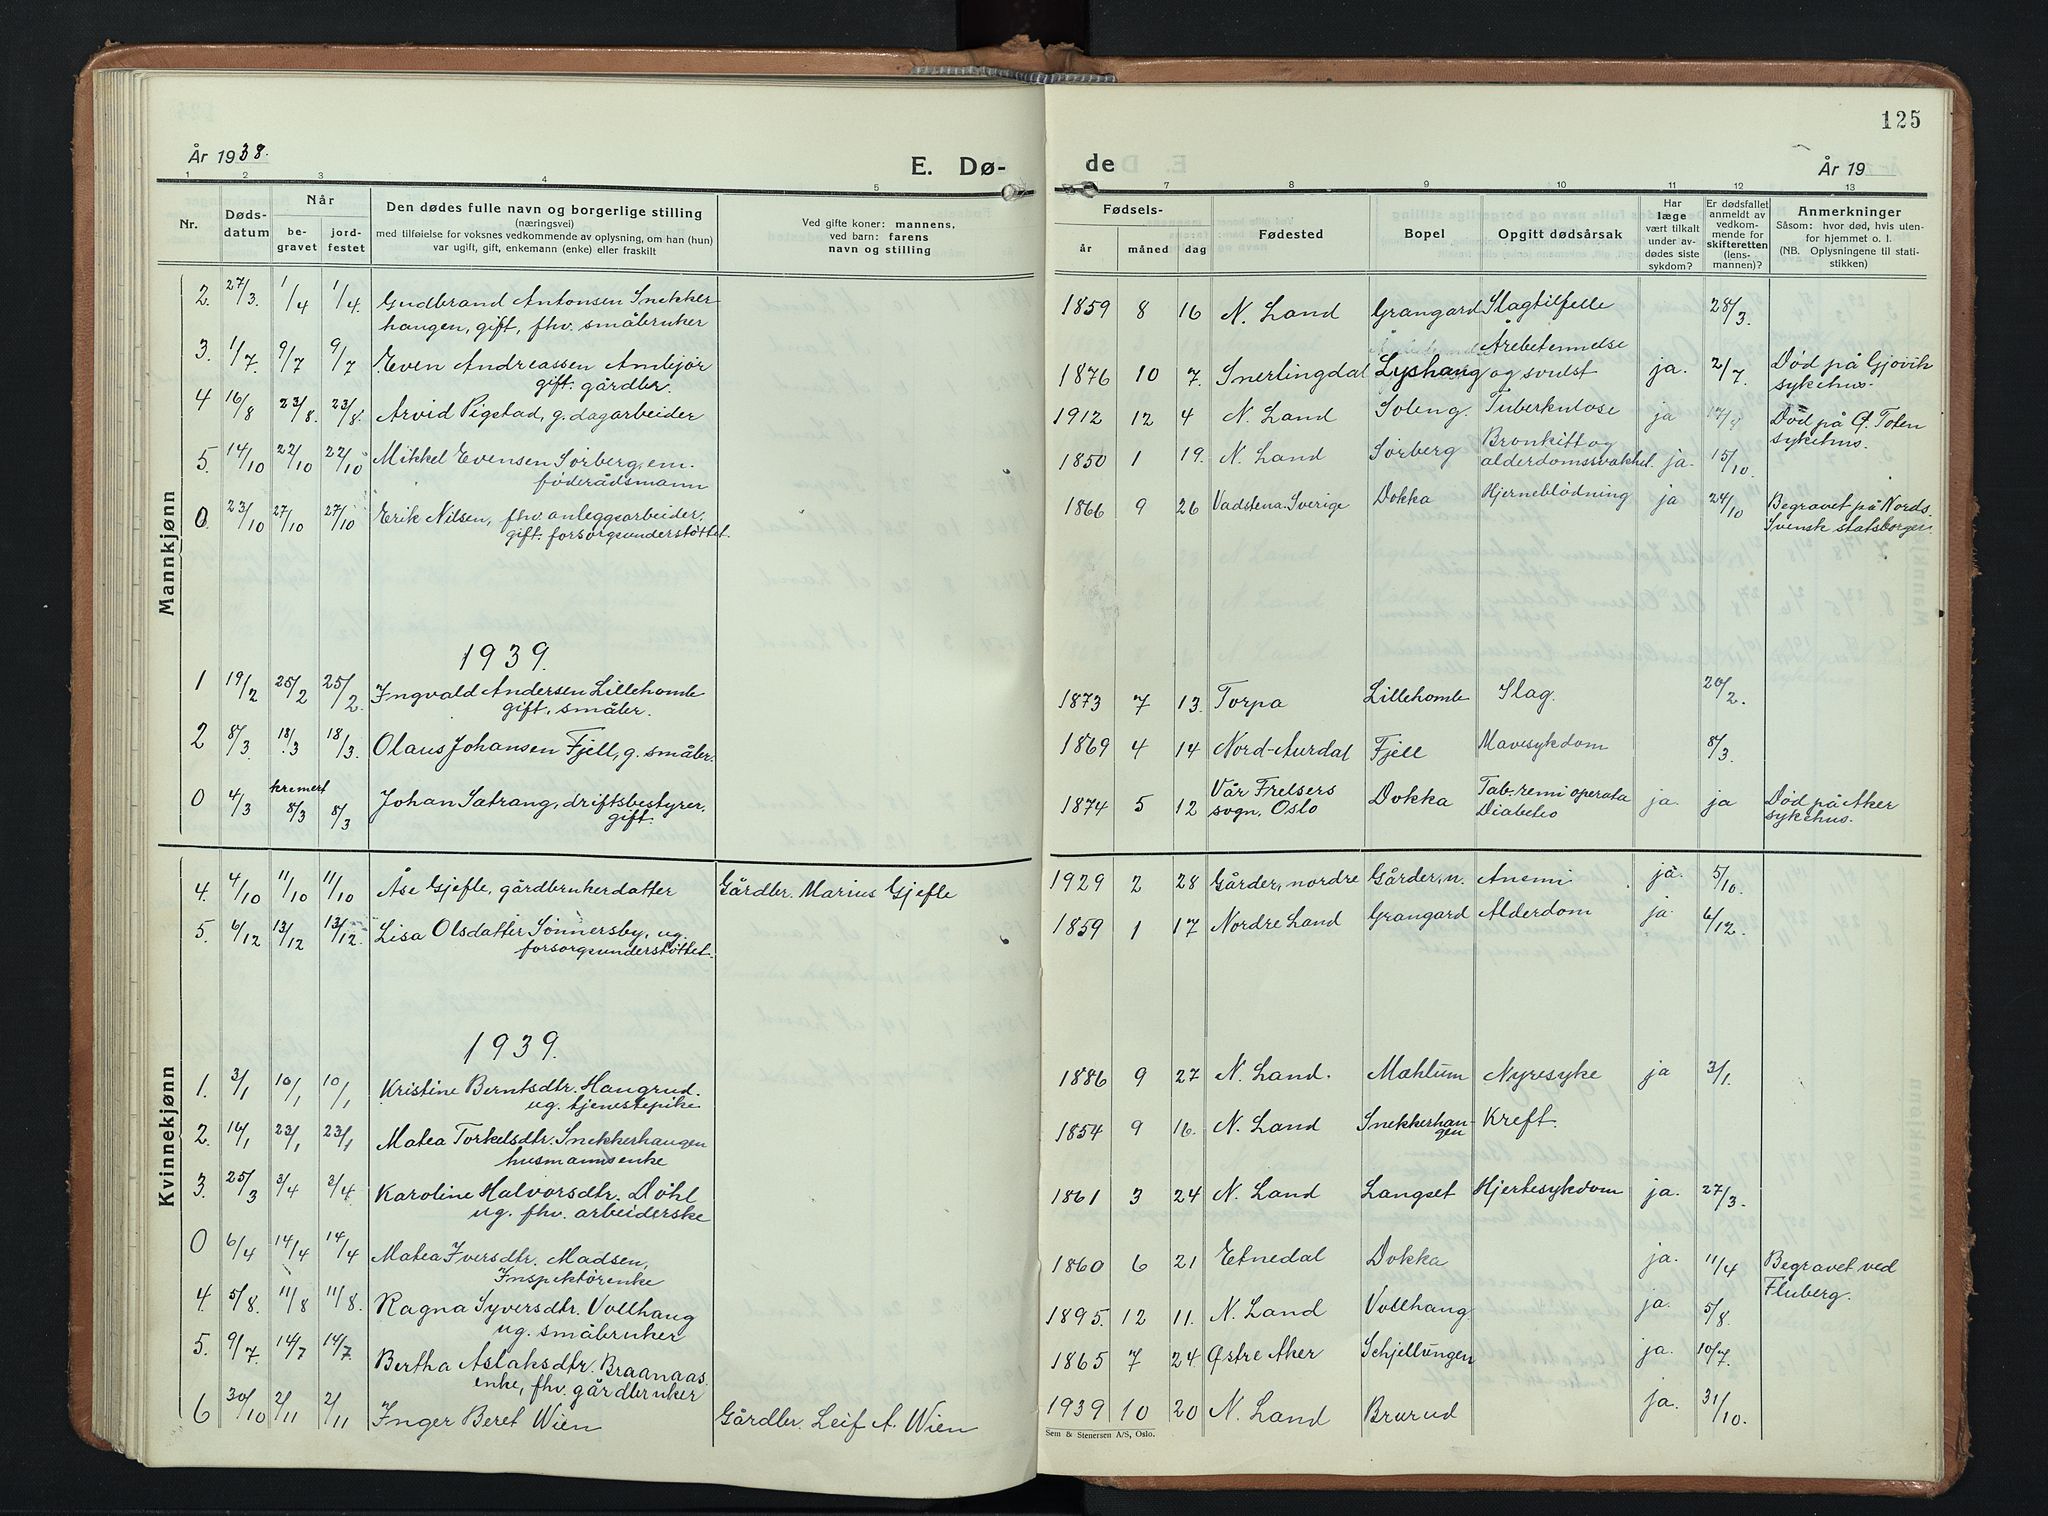 125
År 1938.
E. Dø-
de
År 19
1 2 3 4 5 7 8 9 10 11 12 13
Nr.
Døds-
datum
Når
be-
gravet
jord-
festet
Den dødes fulle navn og borgerlige stilling
(næringsvei)
med tilføielse for voksnes vedkommende av oplysning, om han (hun)
var ugift, gift, enkemann (enke) eller fraskilt
Ved gifte koner: mannens,
ved barn: farens
navn og stilling
Fødsels-
år måned dag
Fødested
Bopel
Opgitt dødsårsak
Har
læge
vært tilkalt
under av-
dødes siste
sykdom?
Er dødsfallet
anmeldt av
vedkom-
mende for
skifteretten
(lens-
mannen)?
Anmerkninger
Såsom: hvor død, hvis uten-
for hjemmet o. l.
(NB. Oplysningene til stati-
stikken)
Mannkjønn
2. 27/3. 1/4 1/4. Gudbrand Antonsen Snekker 1859 8 16 N. Land Grangard Slagtilfelle 28/3.
haugen, gift, fhv. småbruker
3. 1/7. 9/7 9/7 Even Andreassen Amlejør Årebetennelse
gift. gårdbr. 1876 10 7. Snertingdal Lyshaug og svulst ja. 2/7. Død på Gjøvik
sykehus.
4 16/8 23/8. 23/8. Arvid Rigstad, g. dagarbeider 1912 12 4 N. Land Soleng. Tuberkulose ja 17/8 Død på Ø. Toten
sykehus.
5. 14/10 22/10 22/10 Mikkel Evensen Sørberg, em. 1850 1 19. N. Land Sørberg Bronkitt og
føderådsmann alderdomssvakhet. ja. 15/10
0. 23/10 27/10 27/10 Erik Nilsen, fhv. anleggsarbeider, 1866 9 26 Vadstena. Sverige Dokka Hjerneblødning ja 24/10 Begravet på Nords.
gift. forsorgsunderstøttet. Svensk statsborger.
1939.
1 19/2 25/2 25/2. Ingvald Andersen Lillehomle 1873 7 13. Torpa Lillehomle Slag. 20/2.
gift, småbr.
2 8/3 18/3 18/3. Olaus Johansen Fjell, g. småbr. 1869 4 14 Nord-Aurdal Fjell Mavesykdom 8/3.
0 4/3 kremert 8/3 8/3 Johan Sætrang, driftsbestyrer, 1874 5 12 Vår Frelsers
sogn, Oslo Dokka Tab-remi operata
Diabetes ja. ja Død på Aker
sykehus.
gift.
Kvinnekjønn
4. 4/10 11/10 11/10 Åse Gjefle, gårdbrukerdatter Gårdbr. Marius Gjefle 1929 2 28 Gårder, nordre Gårder, n. Anemi ja. 5/10.
5. 6/12 13/12 13/12. Lisa Olsdatter Sønnersby, ug. 1859 1 17 Nordre Land Grangard Alderdom ja. 6/12.
forsorgsunderstøttet.
1939.
1. 3/1 10/1 10/1 Kristine Berntsdtr. Haugrud. 1886 9 27 N. Land. Mæhlum Nyresyke ja 3/1.
ug. tjenestepike
2. 16/1 23/1 23/1 Matea Torkelsdtr. Snekkerhaugen 1854 9 16. N. Land Snekkerhau-
gen Kreft.
husmannsenke
3. 25/3 3/4 3/4. Karoline Halvorsdtr. Døhl 1861 3 24 N. Land Langset Hjertesykdom ja. 27/3.
ug. fhv. arbeiderske
0 6/4 14/4 14/4 Matea Iversdtr. Madsen, 1860 6 21 Etnedal Dokka ja. 11/4 Begravet ved
Inspektørenke Fluberg.
4. 5/8. 11/8 11/8. Ragna Syversdtr. Vollhaug 1895. 12 11. N. Land Vollhaug. ja. 5/8
ug. småbruker
5. 9/7. 14/7 14/7. Bertha Aslaksdtr. Braanaas. 1865 7 24 Østre Aker Schjellungen ja. 10/7.
enke, fhv. gårdbruker
6 30/10 2/11 2/11 Inger Beret Wien Gårdbr. Leif A. Wien 1939 10 20 N. Land Brurud ja. 31/10.
Sem & Stenersen A/S, Oslo.